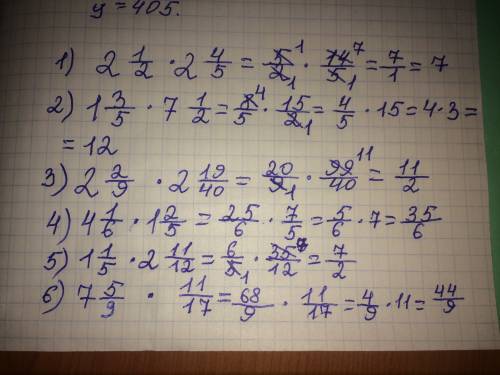 y = 405.
1) 2 1/2 · 2 4/5 = 5/2 · 14/5 = 7/1 = 7
2) 1 3/5 · 7 1/2 = 8/5 · 15/2 = 4/5 · 15 = 4 · 3 =
= 12
3) 2 2/9 · 2 19/40 = 20/9 · 99/40 = 11/2
4) 4 1/6 · 1 2/5 = 25/6 · 7/5 = 5/6 · 7 = 35/6
5) 1 1/5 · 2 11/12 = 6/5 · 35/12 = 7/2
6) 7 5/9 · 11/17 = 68/9 · 11/17 = 4/9 · 11 = 44/9